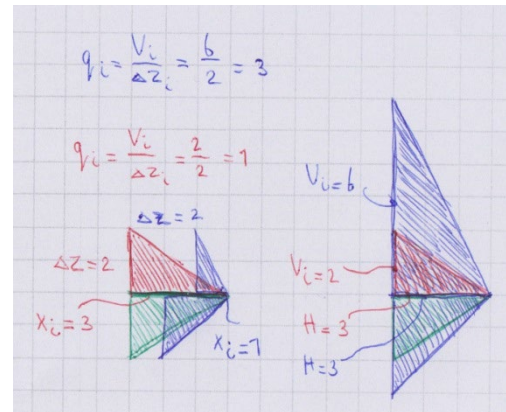 qi = Vi/ΔZi = 6/2 = 3
qi = Vi/ΔZi = 2/2 = 1
ΔZ = 2
ΔZ = 2
Xi = 3
Xi = 1
Vi = 6
Vi = 2
H = 3
H = 3